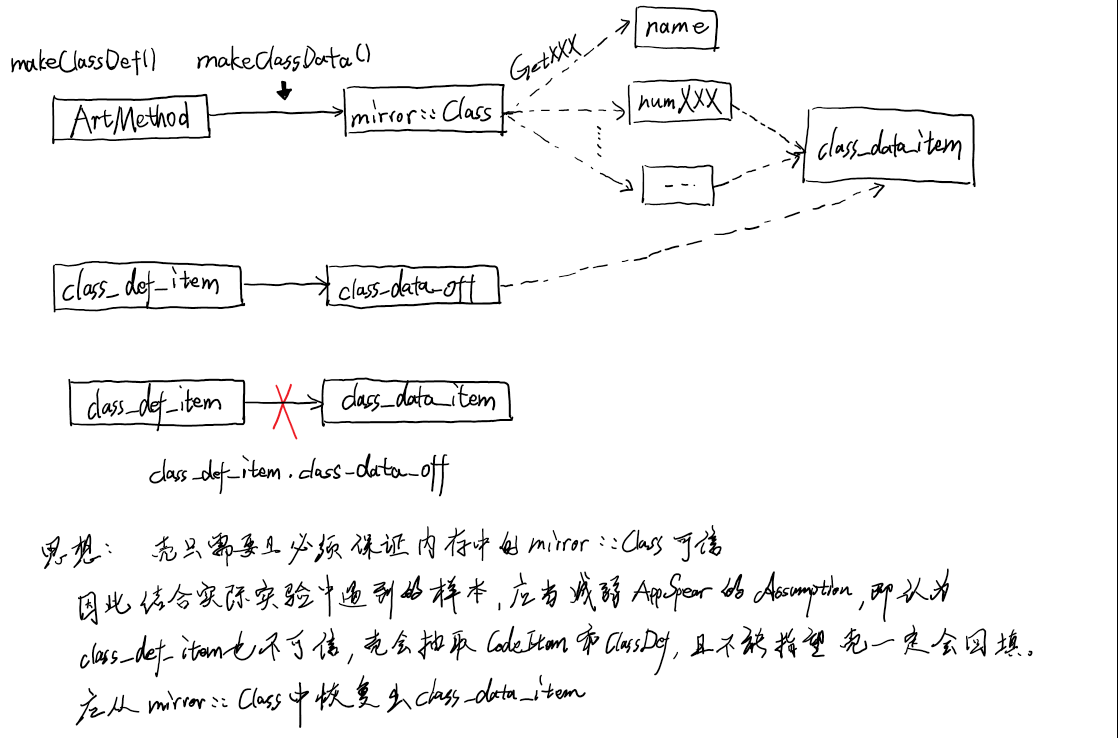 makeClassDef() makeClassData()
ArtMethod
mirror::Class
GetXXX
name
numXXX
---
class_data_item
class_def_item
class_data_off
class_def_item
class_data_item
class_def_item.class_data_off
思想： 壳只需要且必须保证内存中的mirror::Class可信
因此结合实际实验中遇到的样本，应当减弱AppSpear的Assumption，即认为
class_def_item也不可信，壳会抽取CodeItem和ClassDef，且不能指望壳一定会回填。
应从mirror::Class中恢复出class_data_item